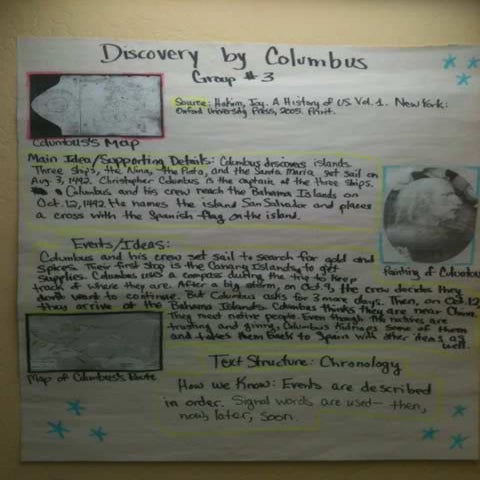 Discovery by Columbus
Group #3
Source: Hakim, Joy. A History of US. Vol. 1. New York:
Oxford University Press, 2005. Print.
Columbus's Map
Main Idea/Supporting Details: Columbus discovers islands.
Three ships, the Nina, the Pinta, and the Santa Maria set sail on
Aug. 3, 1492. Christopher Columbus is the captain of the three ships.
Columbus and his crew reach the Bahama Islands on
Oct. 12, 1492. He names the island San Salvador and places
a cross with the Spanish flag on the island.
Painting of Columbus
Events/Ideas:
Columbus and his crew set sail to search for gold and
spices. Their first stop is the Canary Islands to get
supplies. Columbus uses a compass during the trip to keep
track of where they are. After a big storm, on Oct. 9, the crew decides they
don't want to continue. But Columbus asks for 3 more days. Then, on Oct. 12,
they arrive at the Bahama Islands. Columbus thinks they are near China.
They meet native people. Even though the natives are
trusting and giving, Columbus kidnaps some of them
and takes them back to Spain with other items as
well.
Map of Columbus's Route
Text Structure: Chronology
How we Know: Events are described
in order. Signal words are used— then,
now, later, soon.